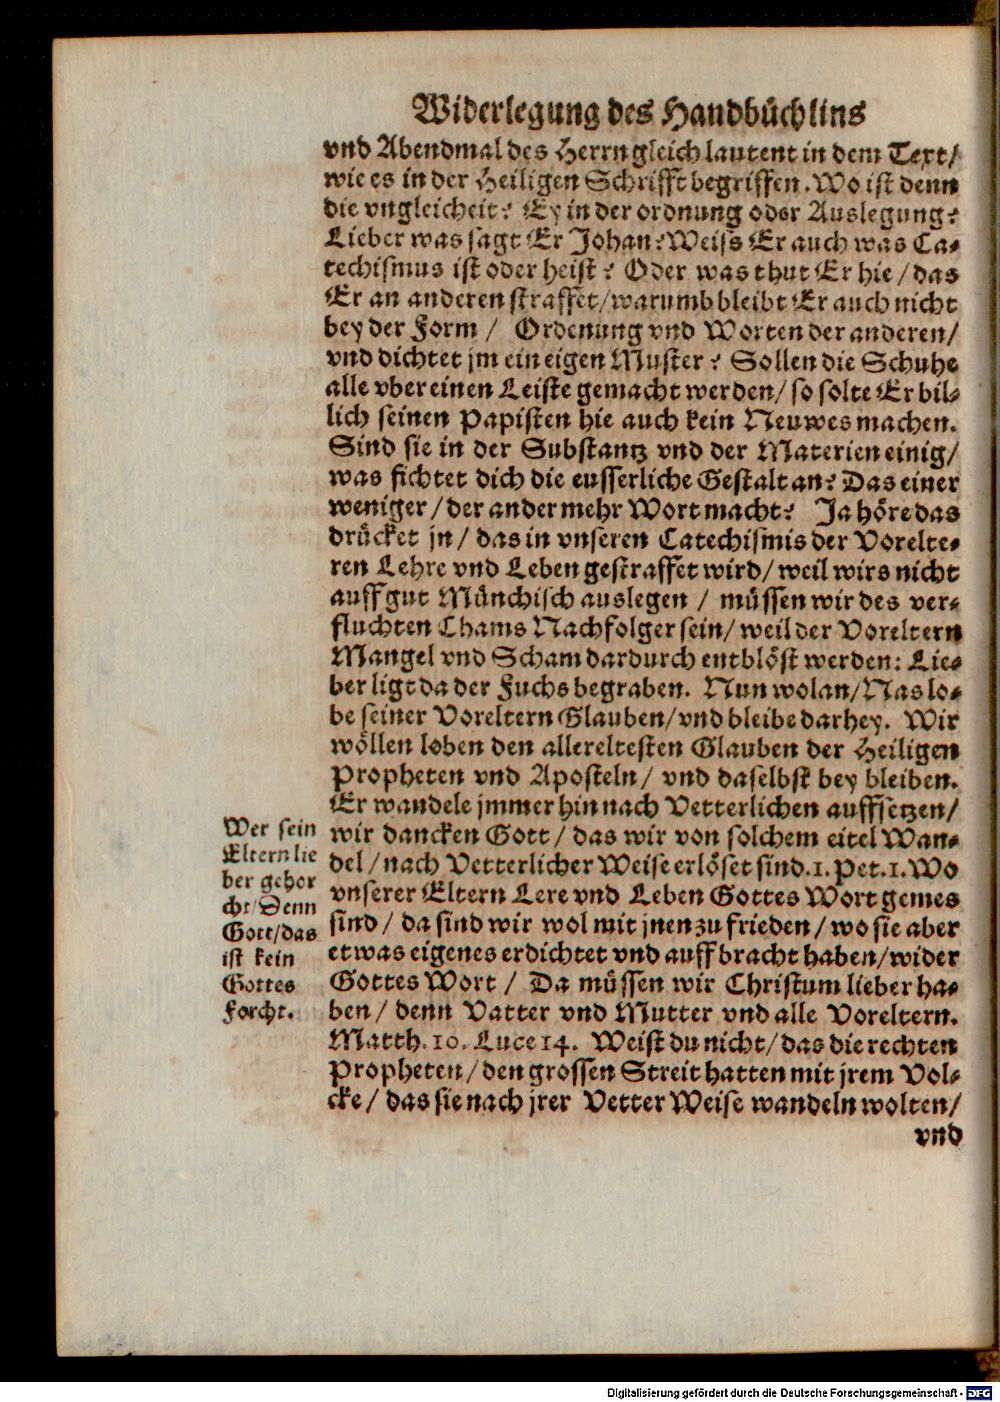 Widerlegung des Handbüchlins
vnd Abendmal des Herrn gleich lautent in dem Text/
wie es in der Heiligen Schrifft begriffen. Wo ist denn
die vngleicheit? Ey in der ordnung oder Auslegung?
Lieber was sagt Er Johan? Weiss Er auch was Ca-
techismus ist oder heist? Oder was thut Er hie/das
Er an anderen straffet/warumb bleibt Er auch nicht
bey der Form/ Ordenung vnd Worten der anderen/
vnd dichtet jm ein eigen Muster? Sollen die Schuhe
alle vber einen Leiste gemacht werden/so solte Er bil-
lich seinen Papisten hie auch kein Neuwes machen.
Sind sie in der Substantz vnd der Materien einig/
was fichtet dich die eusserliche Gestalt an? Das einer
weniger/der ander mehr Wort macht? Ja höre das
drücket jn/das in vnseren Catechismis der Vorelte-
ren Lehre vnd Leben gestraffet wird/weil wirs nicht
auff gut Münchisch auslegen/ müssen wir des ver-
fluchten Chams Nachfolger sein/weil der Voreltern
Mangel vnd Scham dardurch entblöst werden: Lie-
ber ligt da der Fuchs begraben. Nun wolan/Nas lo-
be seiner Voreltern Glauben/vnd bleibe darbey. Wir
wöllen loben den allereltesten Glauben der Heiligen
Propheten vnd Aposteln/ vnd daselbst bey bleiben.
Er wandele jmmer hin nach Vetterlichen auffsetzen/
wir dancken Gott/das wir von solchem eitel Wan-
del/nach Vetterlicher Weise erlöset sind. 1. Pet. 1. Wo
vnserer Eltern Lere vnd Leben Gottes Wort gemes
sind/da sind wir wol mit jnen zu frieden/wo sie aber
etwas eigenes erdichtet vnd auffbracht haben/wider
Gottes Wort/ Da müssen wir Christum lieber ha-
ben/ denn Vatter vnd Mutter vnd alle Voreltern.
Matth. 10. Luce 14. Weist du nicht/das die rechten
Propheten/den grossen Streit hatten mit jrem Vol-
cke/das sie nach jrer Vetter Weise wandeln wolten/
vnd
Wer sein
Eltern lie
ber gehor
cht/Denn
Gott/das
ist kein
Gottes
Forcht.
Digitalisierung gefördert durch die Deutsche Forschungsgemeinschaft - DFG